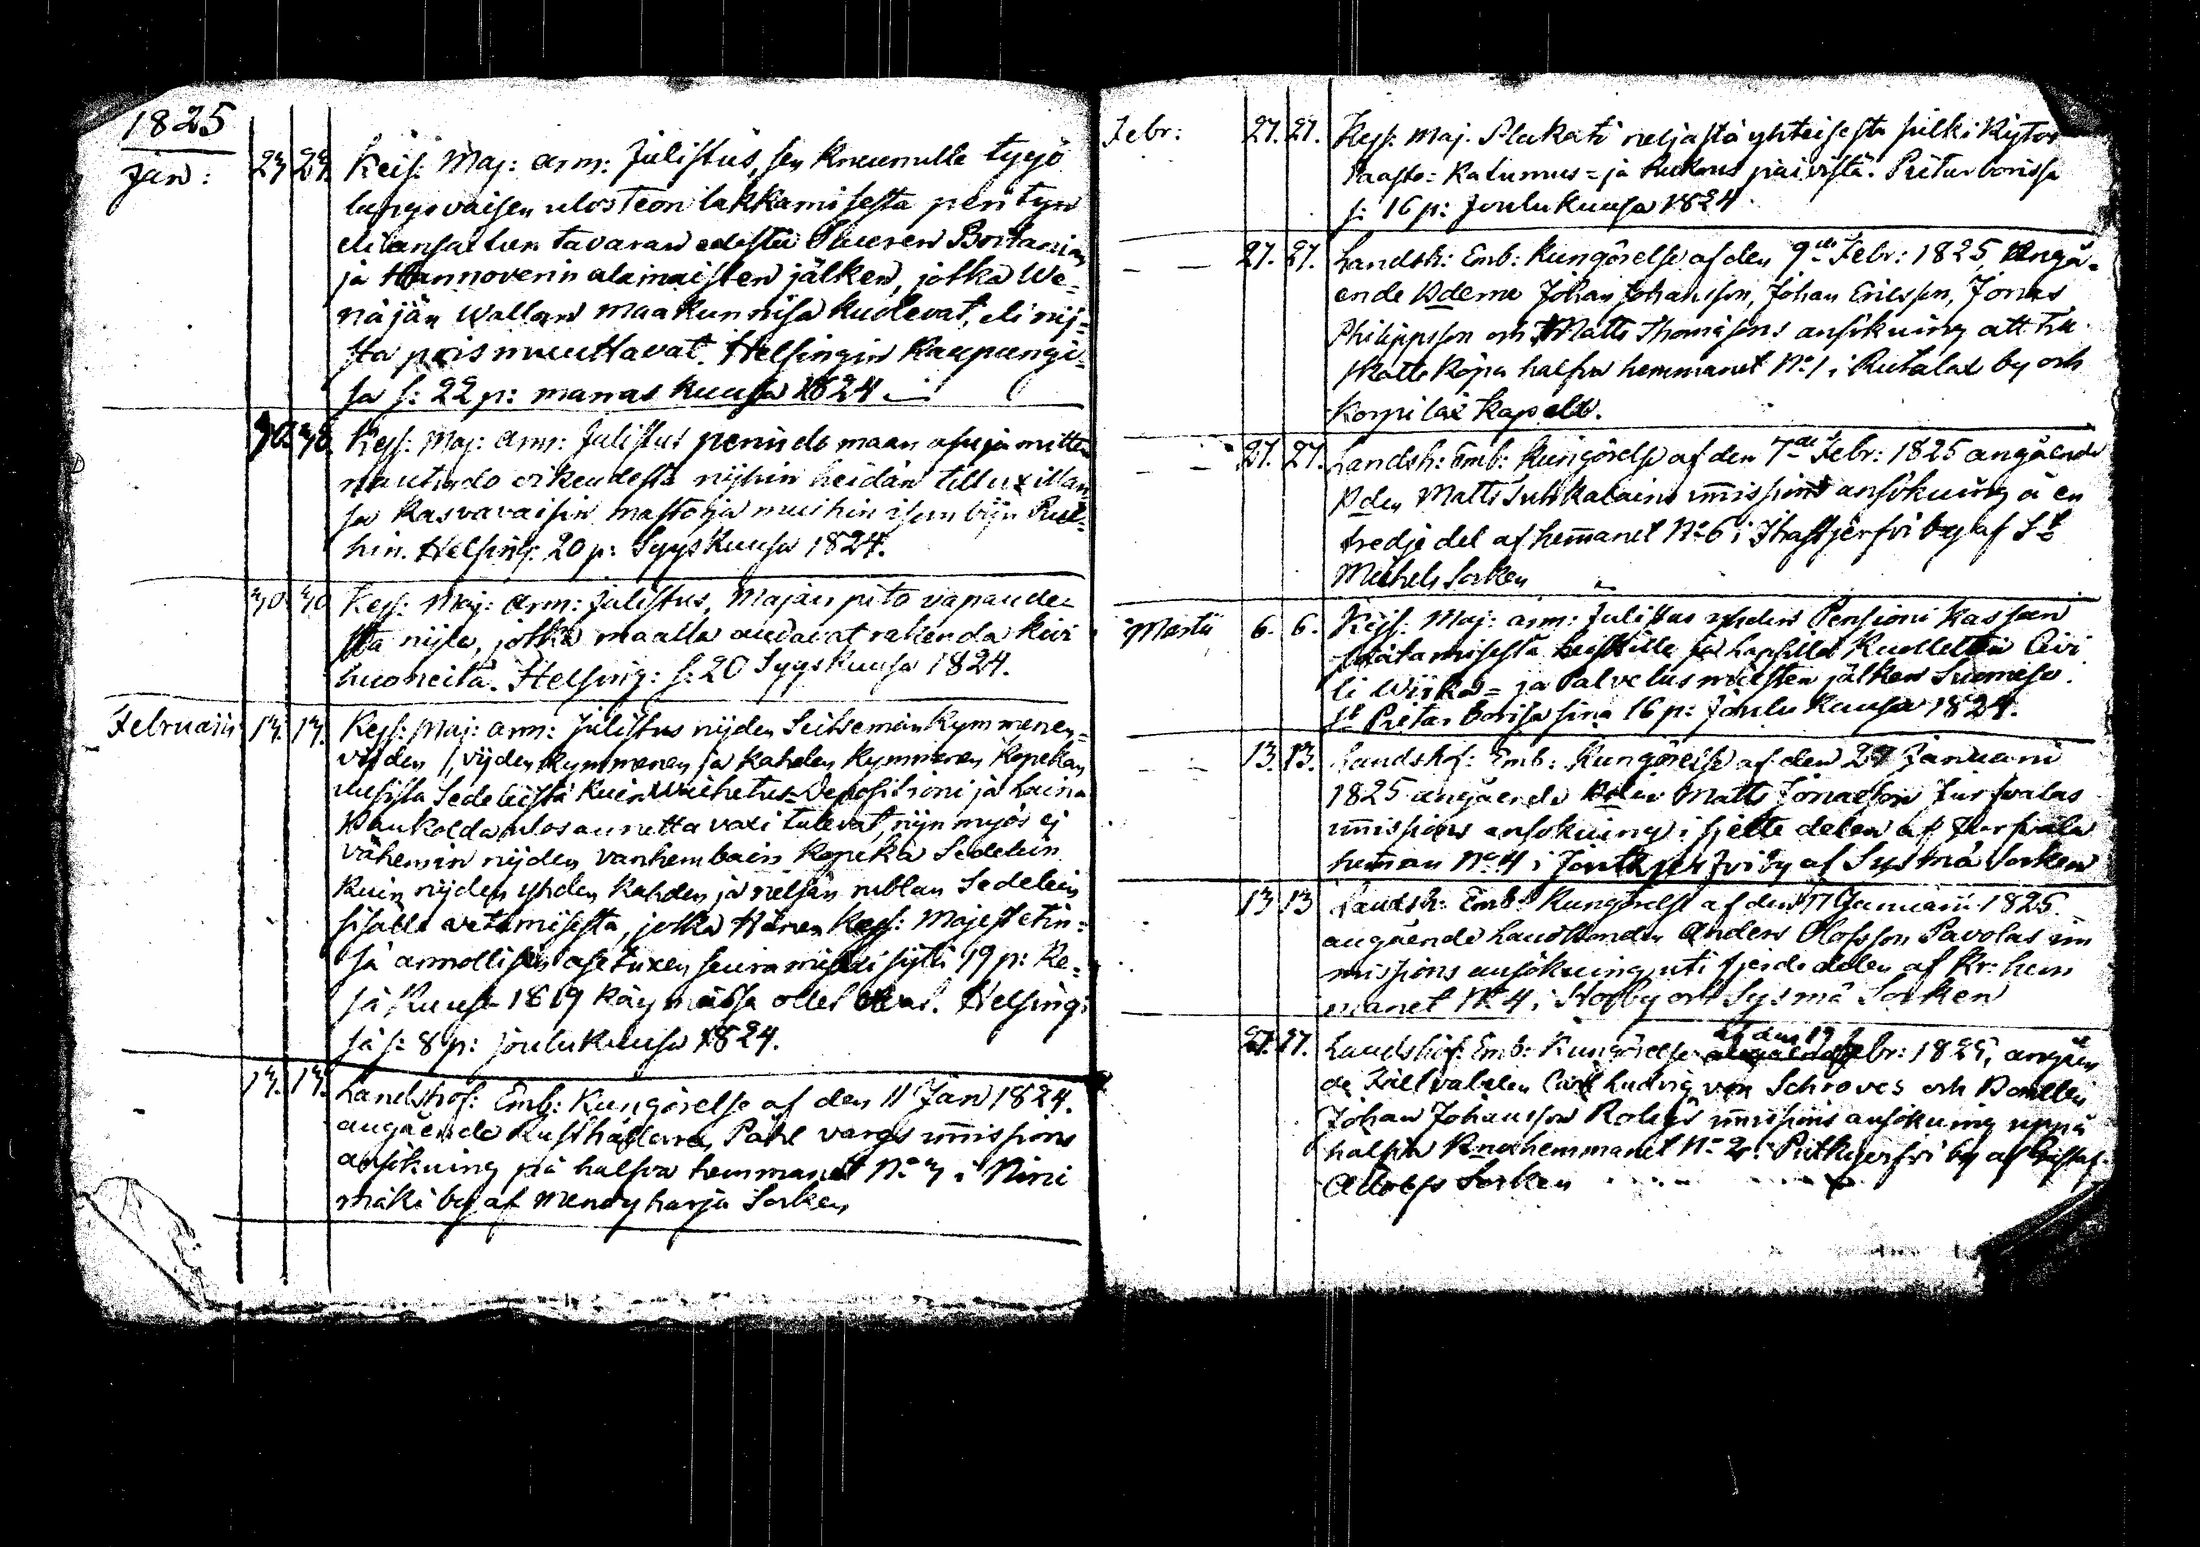 1825
Jan: 23 23. Keis: Maj: arm: Julistus, sen Kruunulle tygö
langevaisen ulosteon lakkamisesta perityn
eli ansaitun tavaran edestä Suuren Britanian
ja Hannoverin alamaisten jälken, jotka We-
näjän Wallan maakunnisa kuolevat, eli nij-
stä pois muuttavat. Helsingin Kaupungi-
sa s: 22 p: marras kuusa 1824
30. 30. Keis: Maj: arm: Julistus perindö maan asuja mitten
nautindo oikeudesta nijhin heidän tilluxillan-
sa Kasvavaisin mastoja muihin isombijn Puu-
hin. Helsing: 20 p: Syys Kuusa 1824.
30. 30 Keis: Maj: Arm: Julistus, Majan pito vapaude-
sta nijle, jotka maalla andavat rakenda kivi
huoneita. Helsing: s: 20 Syys Kuusa 1824.
Februarii 13. 13. Keis: Maj: arm: Julistus nijden Seitsemän Kymmenen-
vijden /, vijden kymmenen ja kahden kymmenen Kopekan
uusista Sedeleistä kuin Waihetus- Depositioni ja Laina
Pankolda ulos annettavaxi tulevat, nijn myös ej
vähemin nijden vanhembain Kopeka Sedelein
kuin nijden yhden kahden ja neljän rublan Sedelein
sisälle vetämisestä, jotka Hänen Keis: Majestetin-
sä armollisen asetuxen seuramisexi sijtä 19 p: Ke-
sä Kuusa 1819 käymässä ollet ovat. Helsing:
sä s: 8 p: joulukuusa 1824.
13. 13. Landshöf: Emb: Kungörelse af den 11 Jan 1824.
angående Rusthållare Påhl vargs immissions
ansökning på halfva hemmanet No 3 i Nini
mäki by af Mendyharju Socken
Febr: 27. 27. Keis: Maj. Plakati neljästä yhteisestä julki Kijtos
Paasto- Katumus- ja Rukous päivistä. Pietarborissa
s: 16 p: Joulukuusa 1824.
— — 27. 27. Landsh: Emb: Kungörelse af den 9de Febr: 1825, Angå-
ende Bderne Johan Johansson, Johan Ericsson, Jonas
Philippsson och Matts Thomassons ansökning att til
skatte köpa halfva hemmanet No 1 i Rutalax by och
Korpilax Kapell.
— — 27. 27. Landsh: Emb: Kungörelse af den 7de Febr: 1825 angående
Bden Matts Suhkalains immissions ansökning å en
tredjedel af hemanet No 6 i Ihastjerfvi by af St
Michels Socken
Martii 6. 6. Keis: Maj: arm: Julistus yhden Pensioni Kassan
säätämisestä leskille ja lapsille Kuolletten Civi
li Wirka- ja Palvelus miesten jälken Suomesa.
St Pietar borisa sinä 16 p: Joulu Kuusa 1824.
— — 13. 13. Landshöf: Emb: Kungörelse af den 27 Januarii
1825 angående Matts Jonasson
immissions ansökning i sjette delen af
heman No 4 i by af Sysmä Socken
13 13 Landsh: Emb: Kungörelse af den 17 Januarii 1825.
angående Landbonden Anders Olofsson Pavolas im
missions ansökning uti fjerde delen af Kr: hem
manet No 4 i Storby och Sysmä Socken
27. 27. Landshöf: Emb: Kungörelse af den 19 Febr: 1825, angåen
de Carl Ludvig von Schroves och Bonden
Johan Johansson immissions ansökning uppå
halfva hemmanet No 2 i Putkijerfvi by af Gustaf
Adolfs Socken